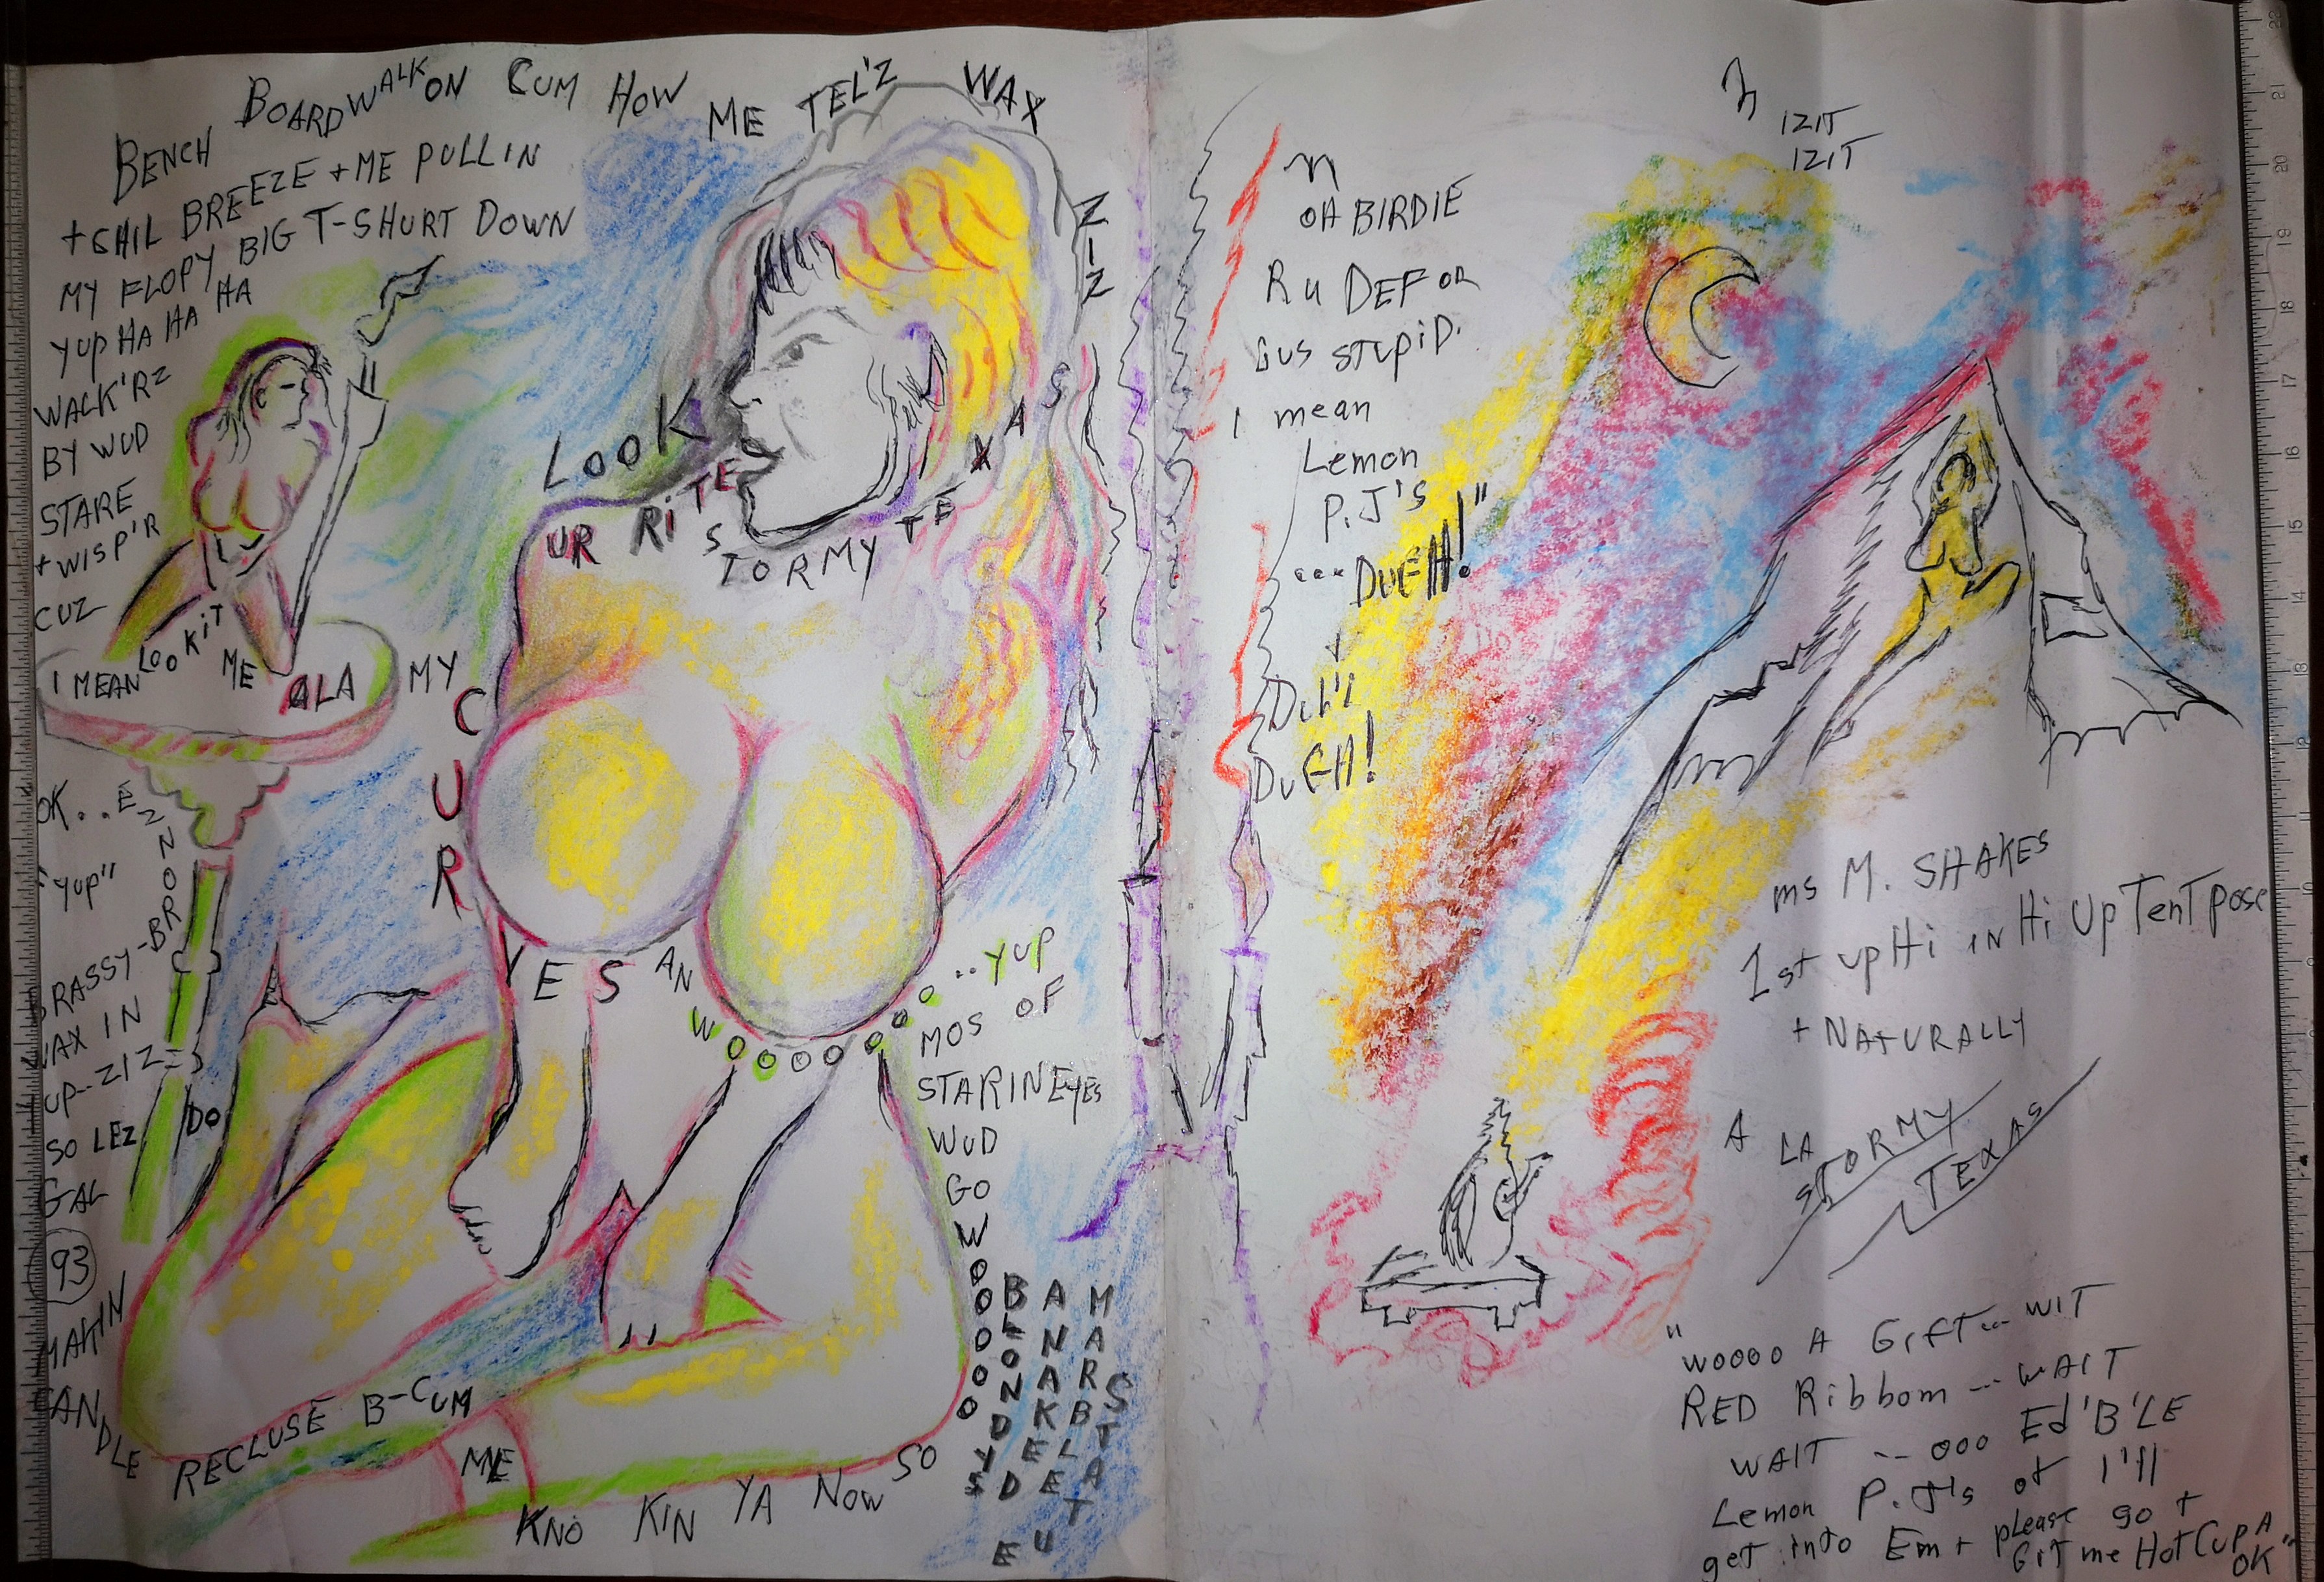 BENCH BOARDWALK ON CUM HOW ME TEL'Z WAX ZIZ
+ CHIL BREEZE + ME PULLIN
MY FLOPY BIG T-SHURT DOWN
YUP HA HA HA HA
WALK'RZ
BY WUD
STARE
+ WISP'R
CUZ
I MEAN LOOKIT ME ALA MY
CUR
LOOK
UR RITE
STORMY TEXAS
YES AN
WOOOOOOO
..YUP
MOS OF
STARIN EYES
WUD
GO
WOOOOO
BLONDYS
ANAKED
MARBLE
STATUE
OK..EZ NOR
"YUP"
BRASSY-BR
WAX IN
UP--ZIZ=
SO LEZ DO
GAL
93
MAKIN
CANDLE
RECLUSE B-CUM
ME
KNO KIN YA NOW SO
IZIT
IZIT
OH BIRDIE
R U DEF OR
GUS STUPID.
I mean
Lemon
P.J'S
... DUEH!"
DUEH!
ms M. SHAKES
1st upHi IN Hi Up TenT pose
+ NATURALLY
A LA
STORMY
TEXAS
"WOOOO A GIFT-- WIT
RED Ribbom -- WAIT
WAIT -- OOO Ed'B'LE
Lemon P.J's ot I'll
get into Em + pLease go +
GiT me Hot Cup A
OK"